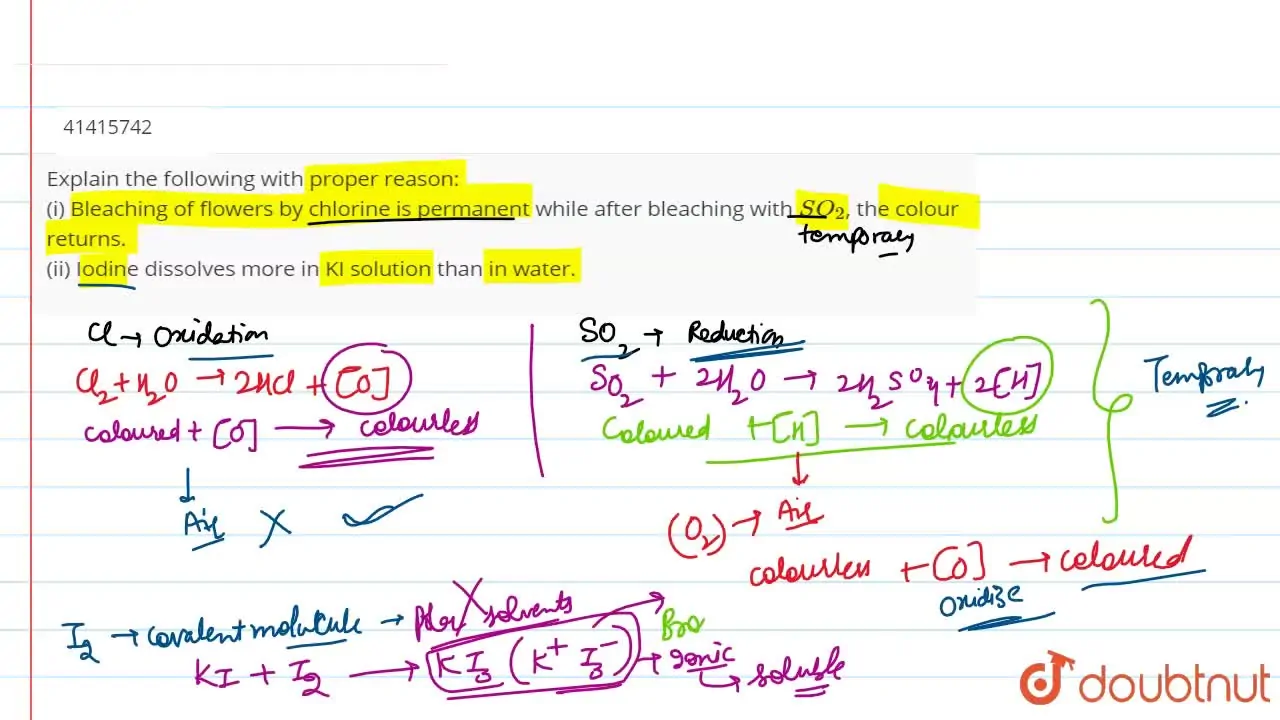 41415742
Explain the following with proper reason:
(i) Bleaching of flowers by chlorine is permanent while after bleaching with SO₂, the colour
returns.
temporaly
(ii) Iodine dissolves more in KI solution than in water.
Cl → Oxidation
Cl₂ + H₂O → 2HCl + [O]
coloured + [O] → colourless
Air X ✓
SO₂ → Reduction
SO₂ + 2H₂O → 2H₂SO₄ + 2[H]
Coloured + [H] → colourless
Temporaly
(O₂) → Air
colourless + [O] → coloured
Oxidize
I₂ → covalent molucule → Polar solvents
KI + I₂ → KI₃ (K⁺ I₃⁻) → Ionic
Bro
soluble
doubtnut